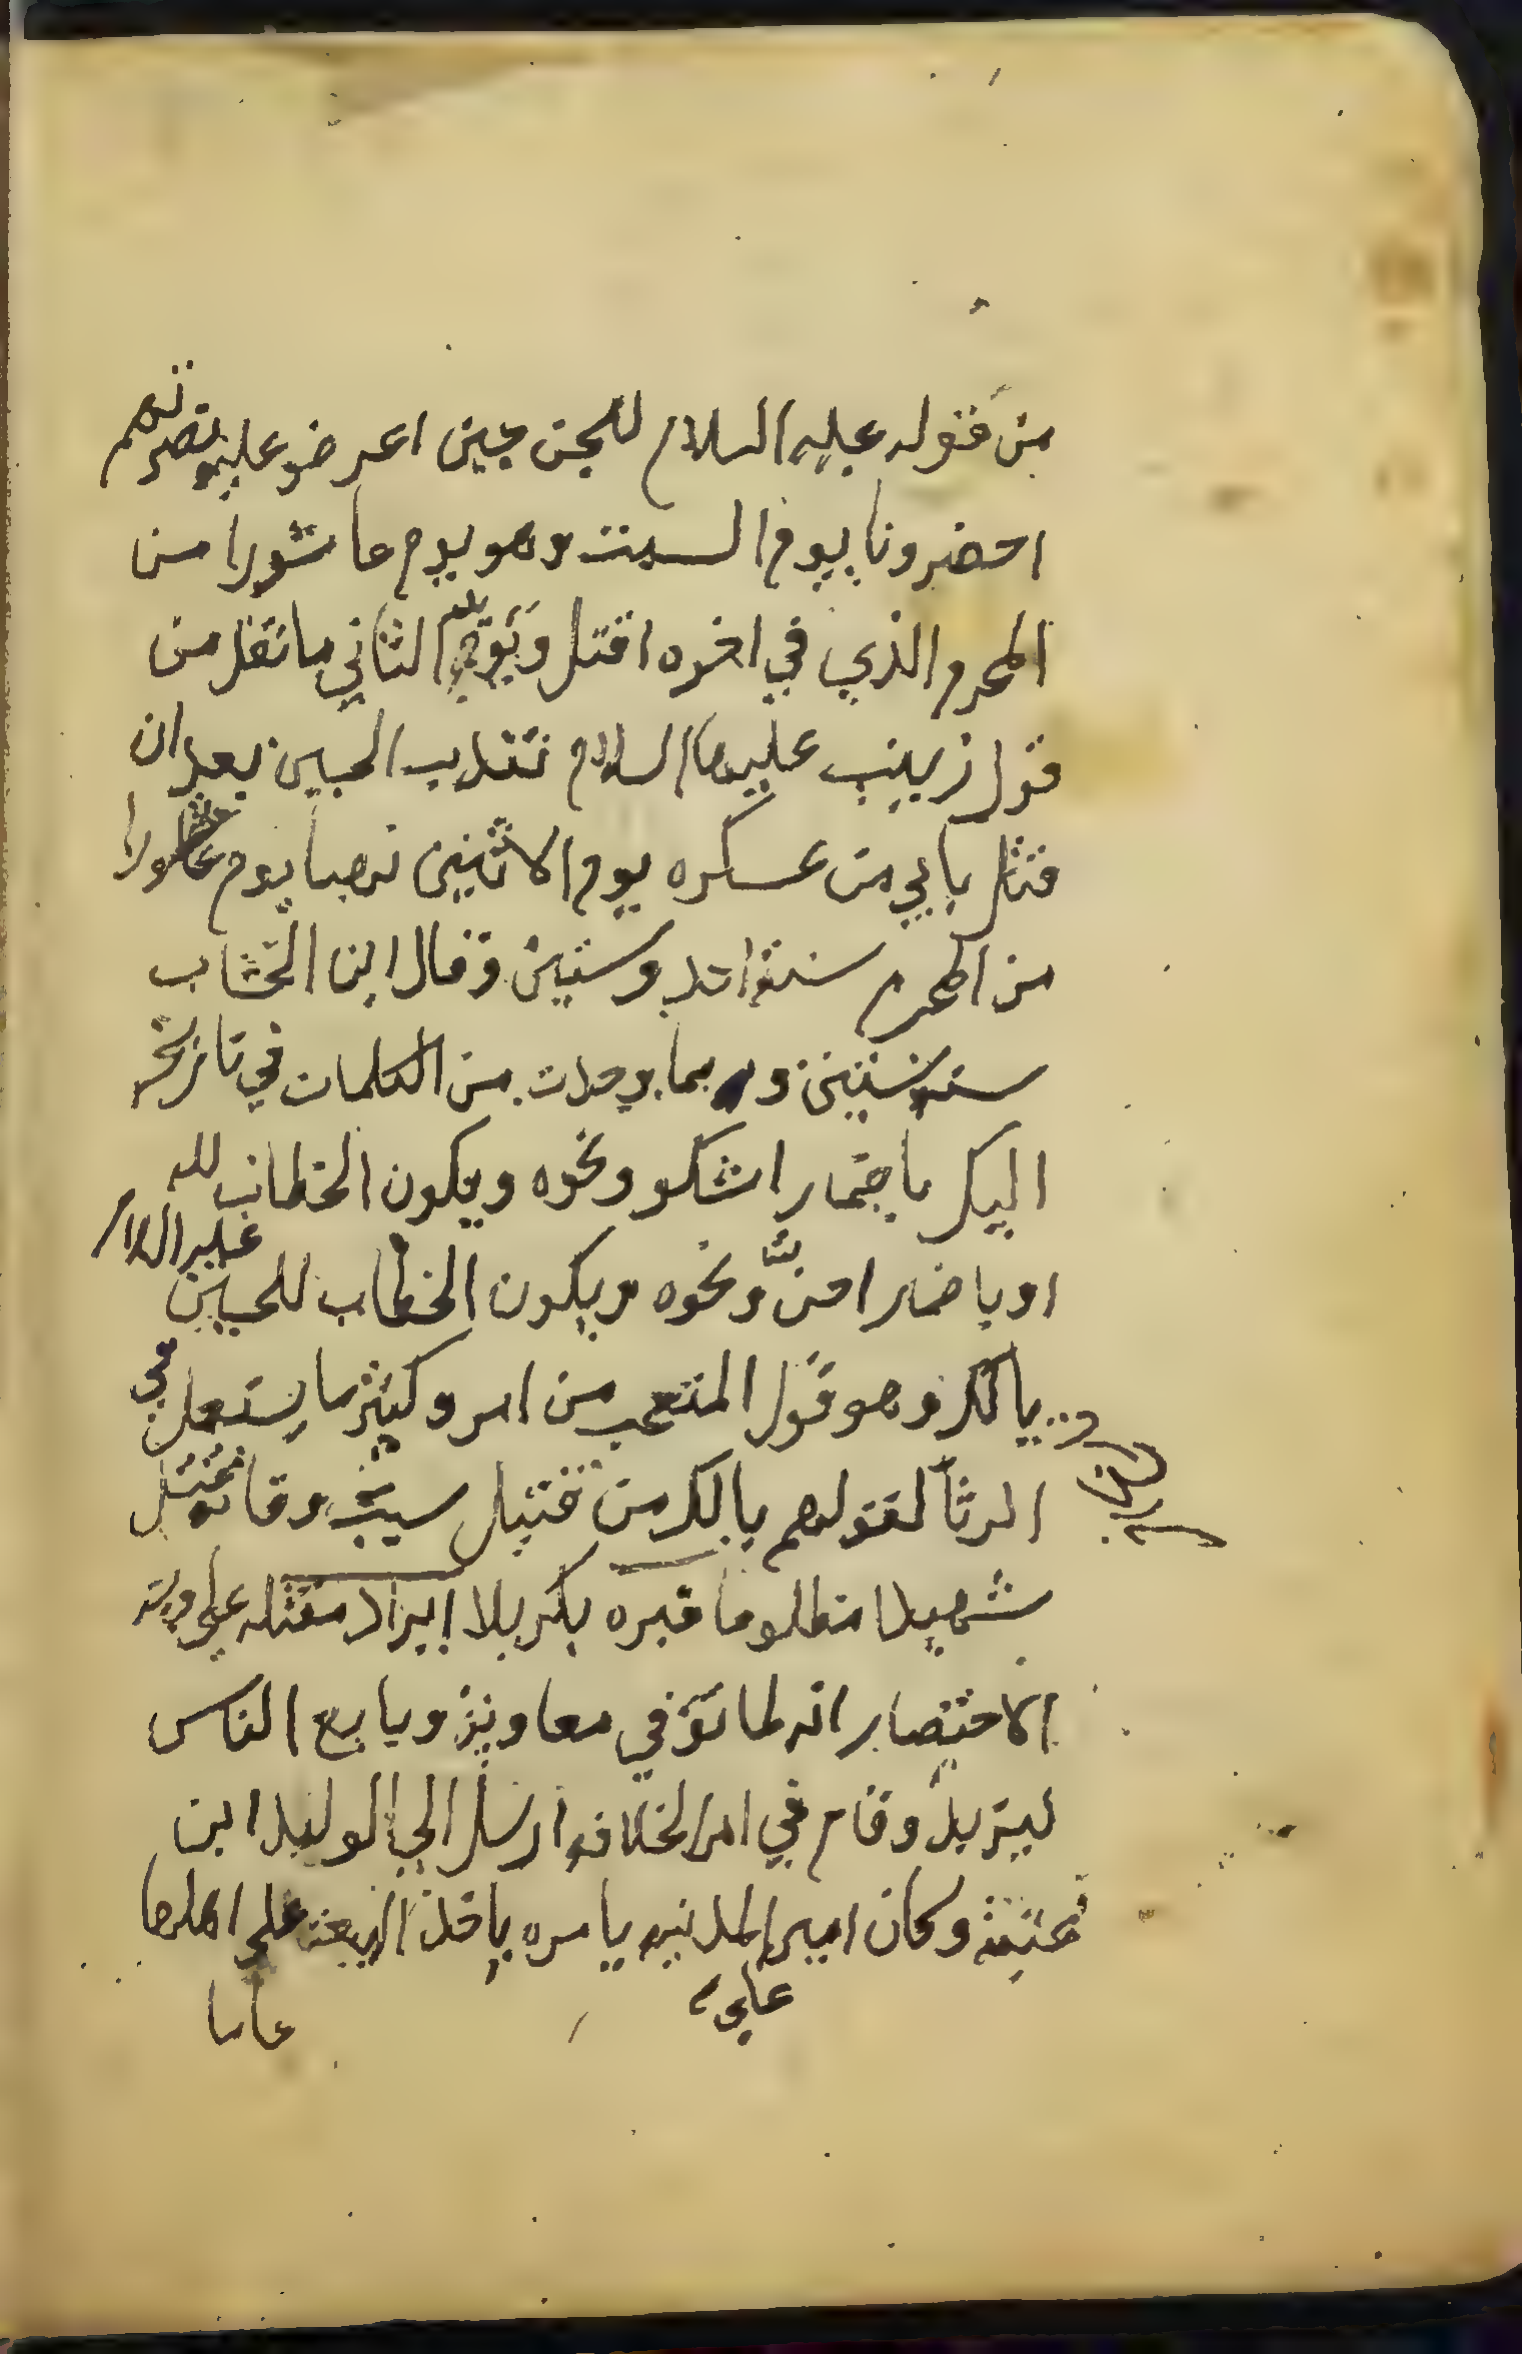 من قوله عليه السلام للجن حين اعرضو عليه نصرتهم
احضرونا يوم السبت وهو يوم عاشورا من
المحرم الذي في اخره اقتل ويويد الثاني ما نقل من
قول زينب عليها السلام تندب الحسين بعد ان
قتل بابي من عسكره يوم الاثنين نهبا يوم عاشورا
من المحرم سنة احد وستين وقال ابن الخشاب
سنة ستين وربما وجدت من الكلمات في تاريخه
اليك باضمار اشكو ونحوه ويكون الخطاب لله
او باضمار احزننا ونحوه ويكون الخطاب للحسين عليه السلام
يالك وهو قول المتعجب من امر وكثير ما يستعمل في
الرثا لقولهم يالك من قتيل سيب وقا
شهيدا مظلوما قبره بكربلا ايراد مقتله علي وجه
الاختصار انه لما توفي معاوية وبايع الناس
ليزيد وقام في امر الخلافه ارسل الي الوليد ابن
عتبة وكان امير المدنيه يامره ياخذ البيعة علي اهلها
علي
عاما